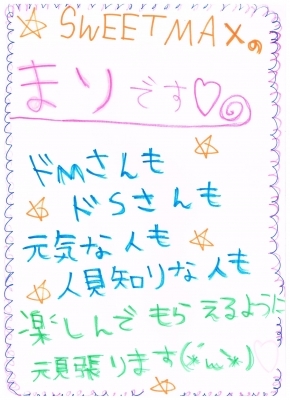 SWEETMAXの
まりです♡
ドMさんも
ドSさんも
元気な人も
人見知りな人も
楽しんでもらえるように
頑張ります(*´ω`*)